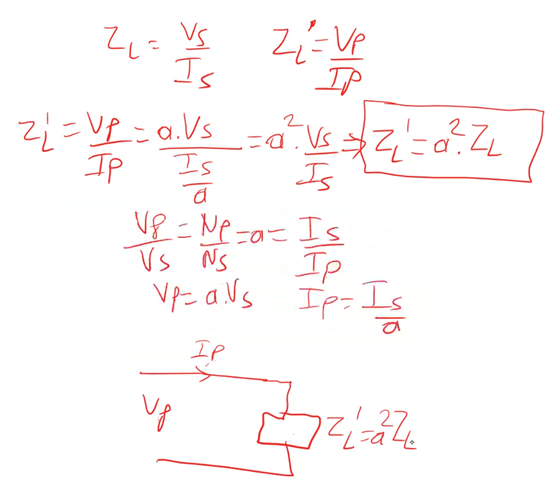 Z_L = V_s / I_s    Z_L' = V_P / I_P
Z_L' = V_P / I_P = a.V_s / (I_s / a) = a² . V_s / I_s ⇒ Z_L' = a² . Z_L
V_P / V_s = N_P / N_s = a = I_s / I_P
V_P = a.V_s    I_P = I_s / a
I_P
V_P
Z_L' = a² Z_L